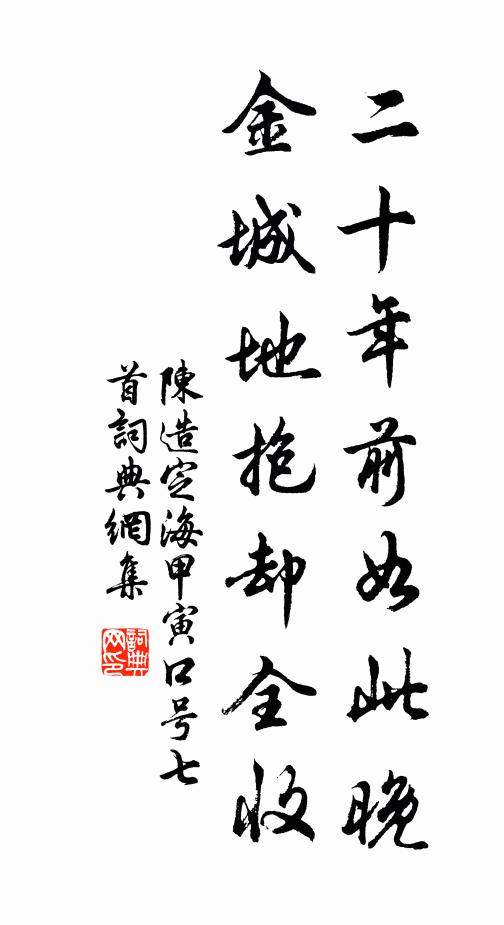 二十年前如此晚
金城地抱却全收
陳造定海甲寅口号七
首詞典網集
詞典
网印